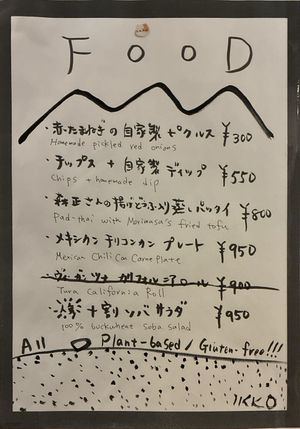 FOOD
・赤たまねぎの自家製ピクルス ¥300
Homemade pickled red onions
・チップス + 自家製ディップ ¥550
Chips + homemade dip
・森正さんの揚げどうふ入り蒸しパッタイ ¥800
Pad-thai with Morimasa's fried tofu
・メキシカン チリコンカン プレート ¥950
Mexican Chili Con Carne Plate
カリフォルニアロール ¥900
Tuna California Roll
十割ソバサラダ ¥950
100% buckwheat soba salad
All Plant-based / Gluten-free!!!